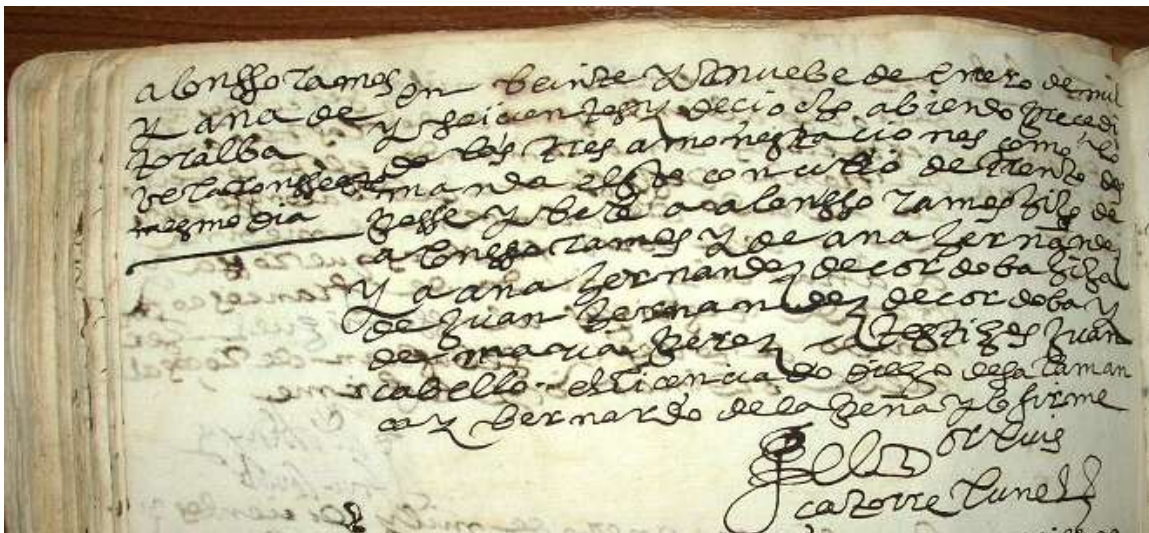 alonsso rames
y ana de
toralba
belaronsse este
mesmo dia
en beinte y nuebe de enero de mil
y seicientos y deciocho abiendo precedi
do las tres amonestaciones como lo
manda el sto concilio de trento des
posse y bele a alonsso rames hijo de
alonsso rames y de ana hernandez
y a ana hernandez de cordoba hija
de juan hernandez de cordoba y
de maria perez testigos juan
cabello el licenciado diego de salaman
ca y bernardo de la peña y lo firme
or luis